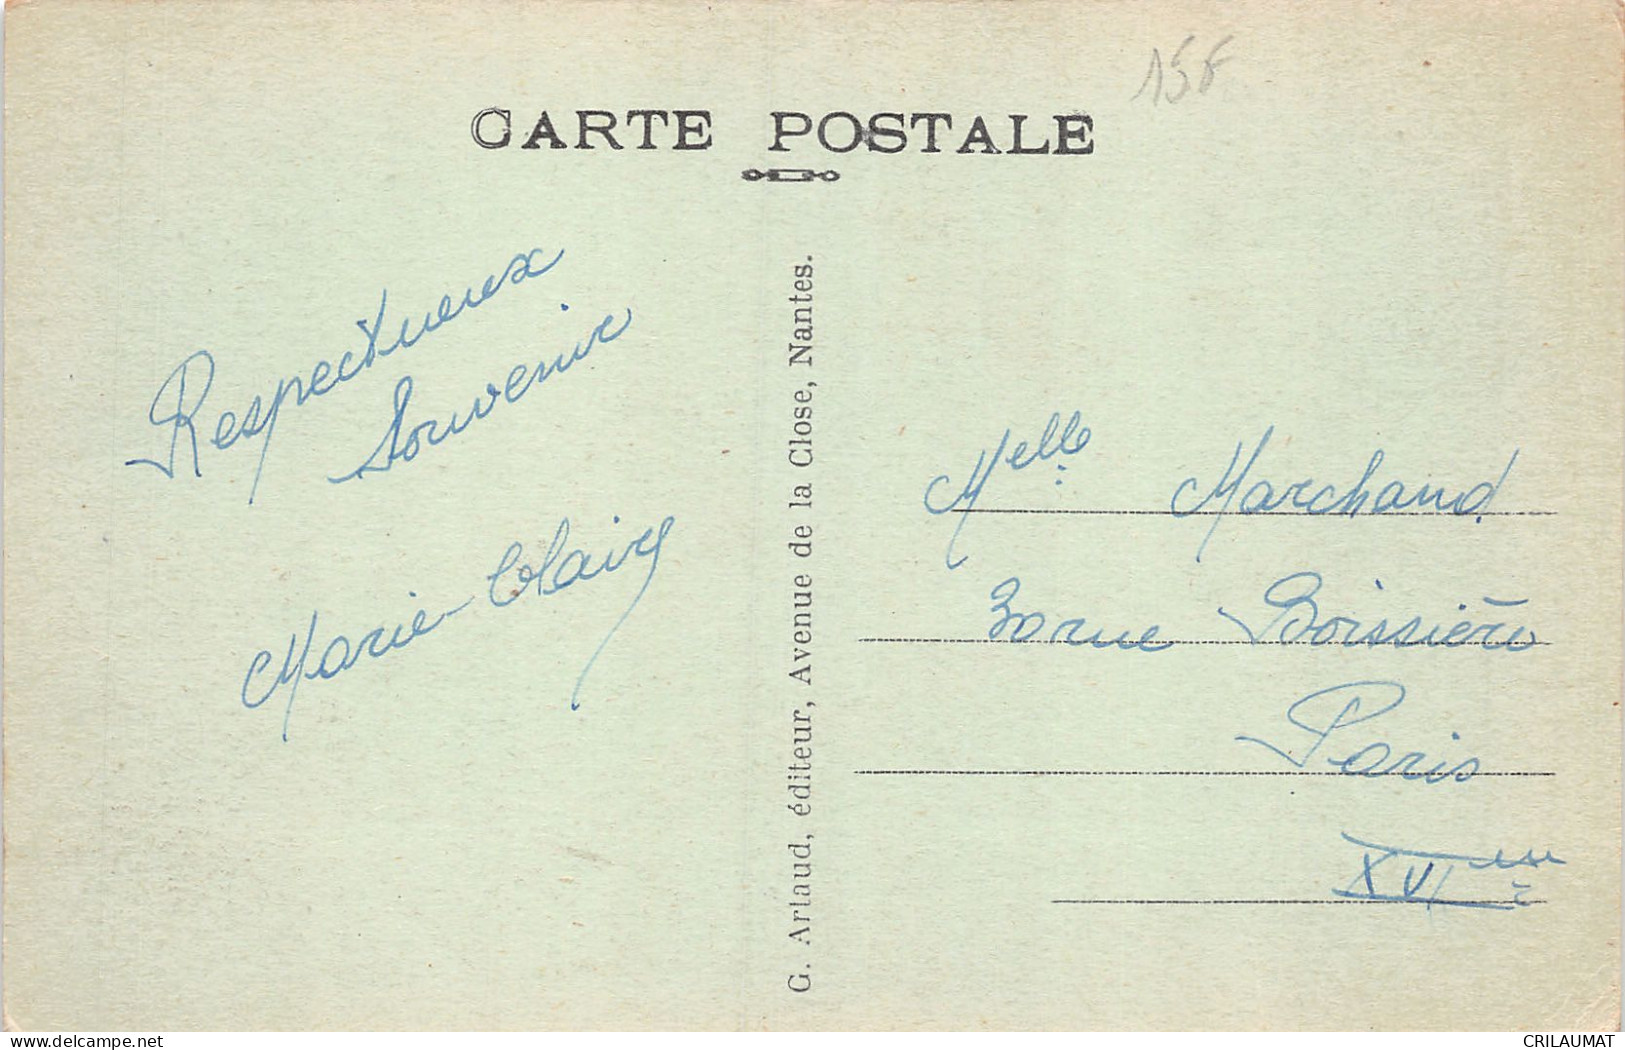 15F
CARTE POSTALE
Respectueux
Souvenir
Marie-Claire
G. Artaud, éditeur, Avenue de la Close, Nantes.
Melle Marchand
30 rue Boissière
Paris
XVIème
delcampe.net
CRILAUMAT